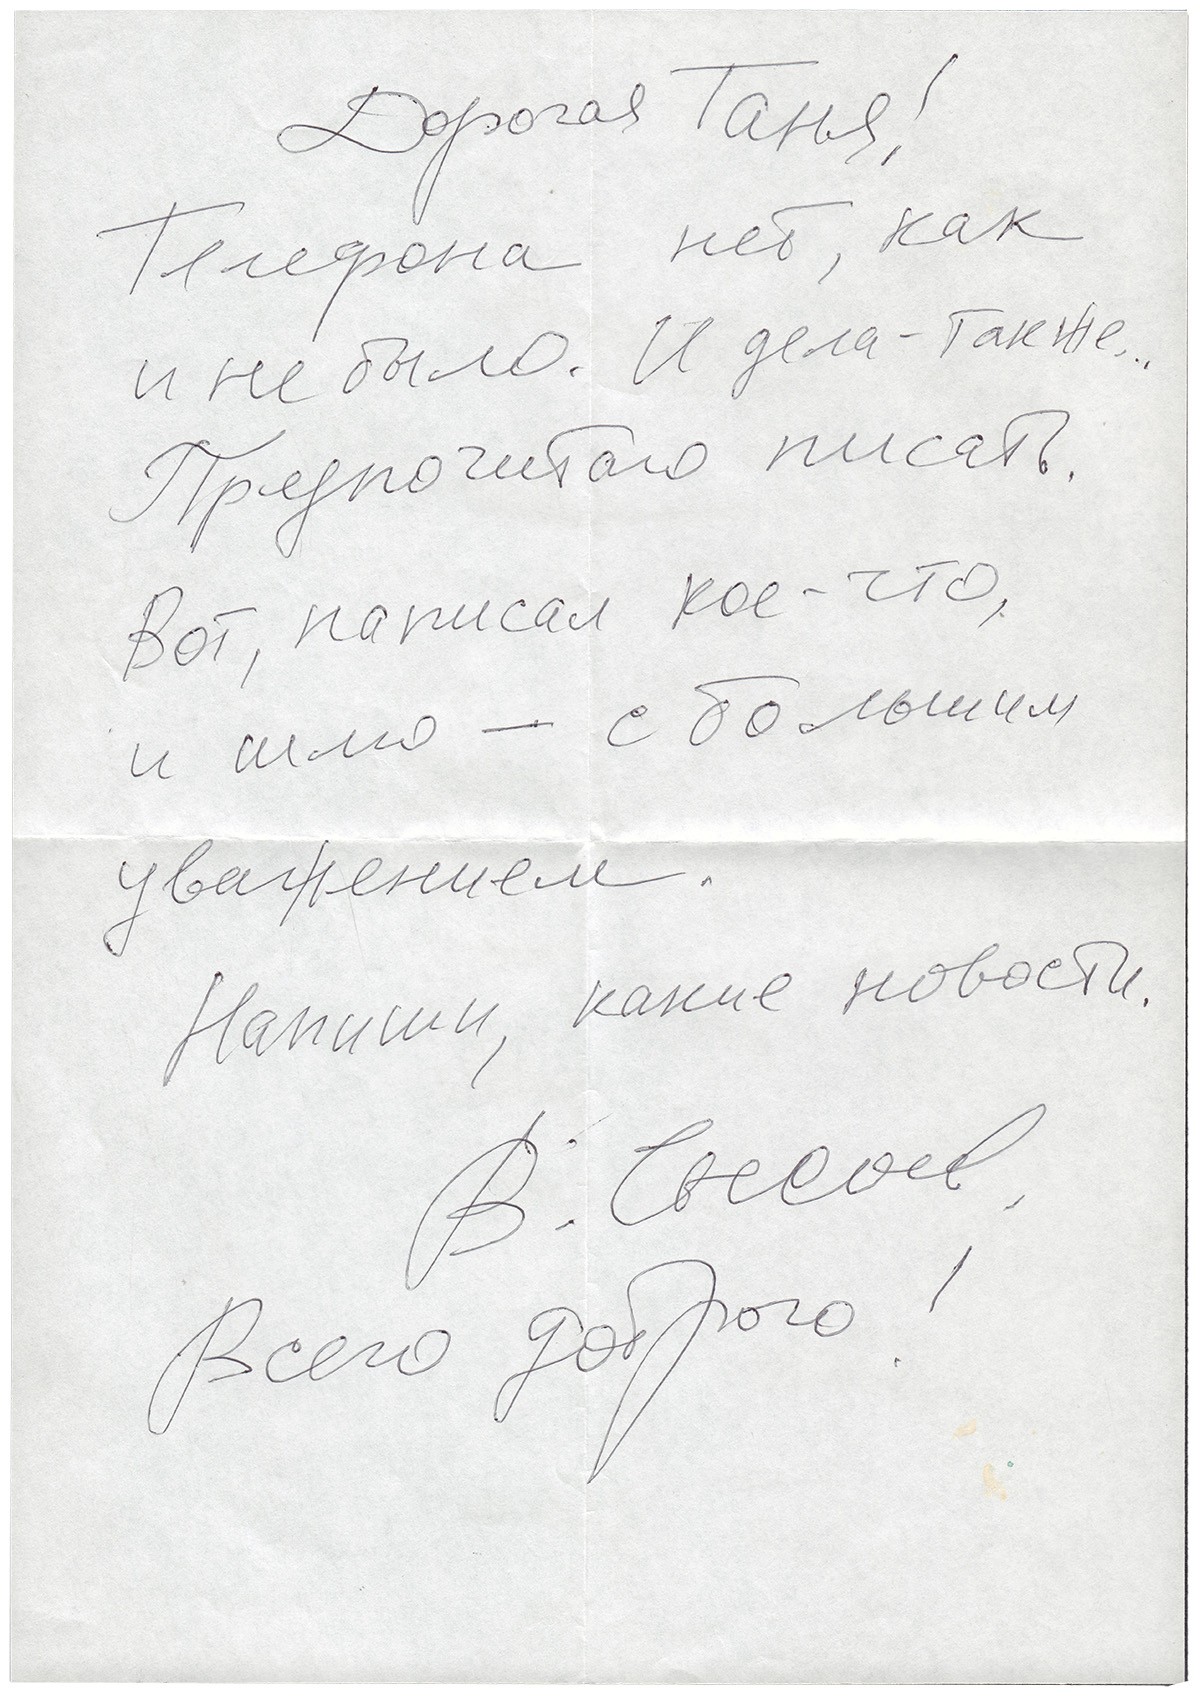 Дорогая Таня!
Телефона нет, как
и не было. И дела - также...
Предпочитаю писать.
Вот, написал кое-что,
и шлю — с большим
уважением.
Напиши, какие новости.
В. Сысоев.
Всего доброго!